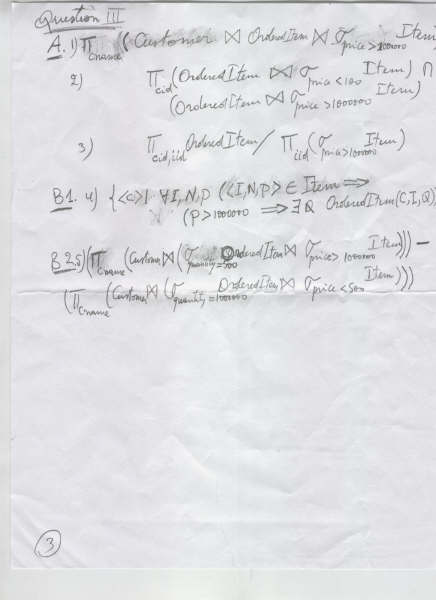 Question III
A. 1) Π cname (Customer ⋈ OrderedItem ⋈ σ price>1000000 Item
2) Π cid (OrderedItem ⋈ σ price<100 Item) ∩
(OrderedItem ⋈ σ price>1000000 Item)
3) Π cid,iid OrderedItem / Π iid (σ price>1000000 Item)
B1. 4) {<c>| ∀I,N,P (<I,N,P> ∈ Item ⇒
(P>1000000 ⇒ ∃Q OrderedItem(C,I,Q)
B2. 5) (Π cname (Customer ⋈ (σ quantity=500 OrderedItem ⋈ σ price>1000000 Item))) −
(Π cname (Customer ⋈ (σ quantity=1000000 OrderedItem ⋈ σ price<500 Item)))
3